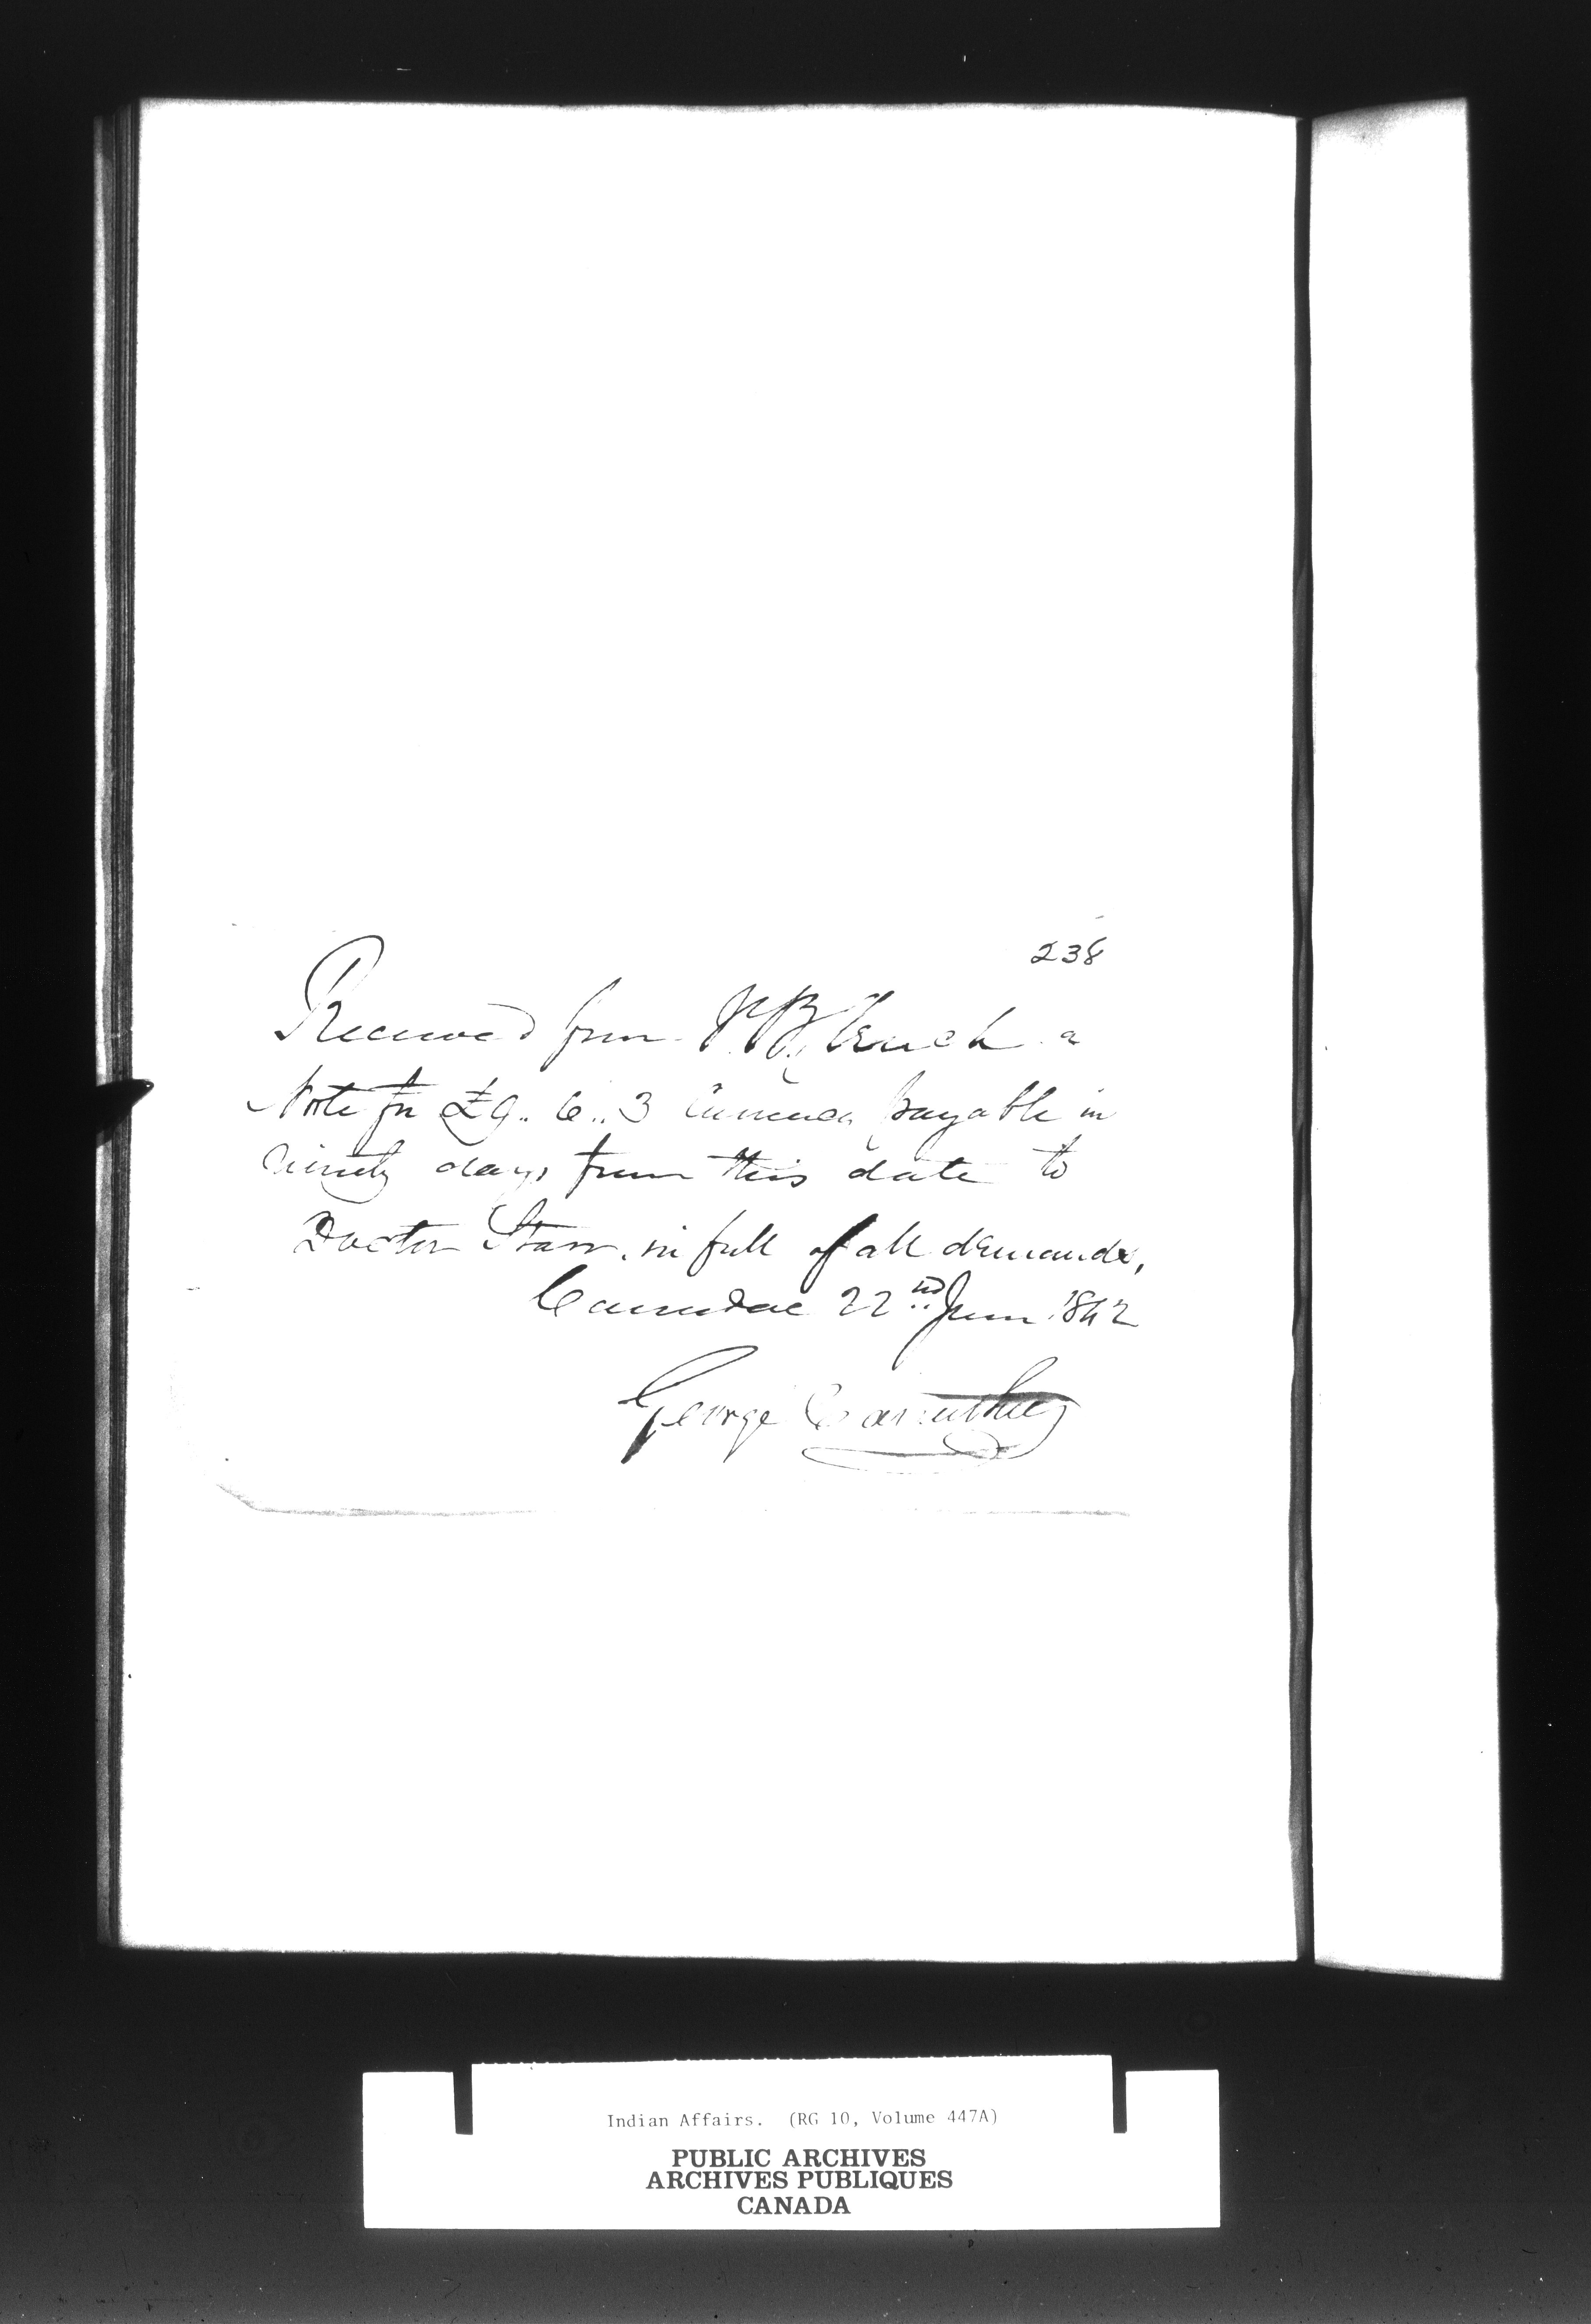 238
Received from J. B. Clench a
Note for £9.. 6.. 3 Currency payable in
ninety days from this date to
Doctor Starr. in full of all demands,
Caradoc 22nd June 1842
George Carruthers
Indian Affairs. (RG 10, Volume 447A)
PUBLIC ARCHIVES
ARCHIVES PUBLIQUES
CANADA